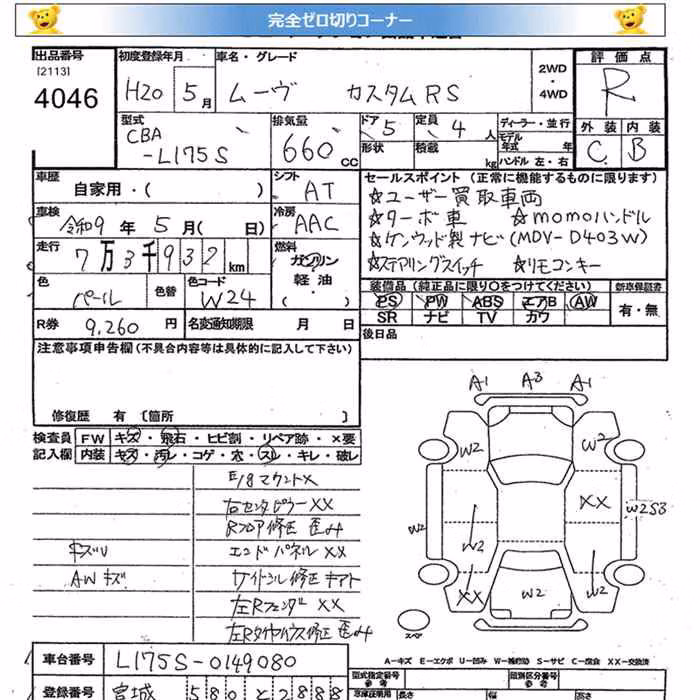 完全ゼロ切りコーナー
出品番号
[2113]
4046
初度登録年月
H20 5月
車名・グレード
ムーヴ カスタムRS
2WD
・
4WD
評価点
R
外装 内装
C B
型式
CBA
-L175S
排気量
660cc
ドア 5
形状
定員 4人
積載 kg
ディーラー・並行
モデル
年式 年
ハンドル 左・右
車歴
自家用・( )
シフト
AT
車検
令和9年5月( 日)
冷房
AAC
走行
7万3千932km
燃料
ガソリン
軽油
・( )
色
パール
色替
色コード
W24
R券 9,260円
名変通知期限 月 日
セールスポイント (正常に機能するものに限ります)
☆ユーザー買取車両
☆ターボ車 ☆momoハンドル
☆ケンウッド製ナビ(MDV-D403W)
☆ステアリングスイッチ ☆リモコンキー
装備品 (純正品に限り○をつけてください)
PS PW ABS エアB AW
SR ナビ TV カワ
新車保証書
有・無
後日品
注意事項申告欄(不具合内容等は具体的に記入して下さい)
修復歴 有 〔箇所 〕
検査員
記入欄
FW キズ・飛石・ヒビ割・リペア跡・×要
内装 キズ・汚レ・コゲ・穴・スレ・キレ・破レ
右センタピラー XX
Rフロア修正 歪み
キズU
エンドパネル XX
AWキズ
サイドシル修正 キアト
左Rフェンダ XX
左Rタイヤハウス修正 歪み
A1 A3 A1
W2 W2
XX
W2S3
W2
W2
XX W2 W2
スペア
A-キズ E-エクボ U-凹み W-補修跡 S-サビ C-腐食 XX-交換済
車台番号 L175S-0149080
登録番号 宮城 580 と 2888
型式指定番号
参考
類別区分番号
参考
車庫証明用 長さ 幅 高さ